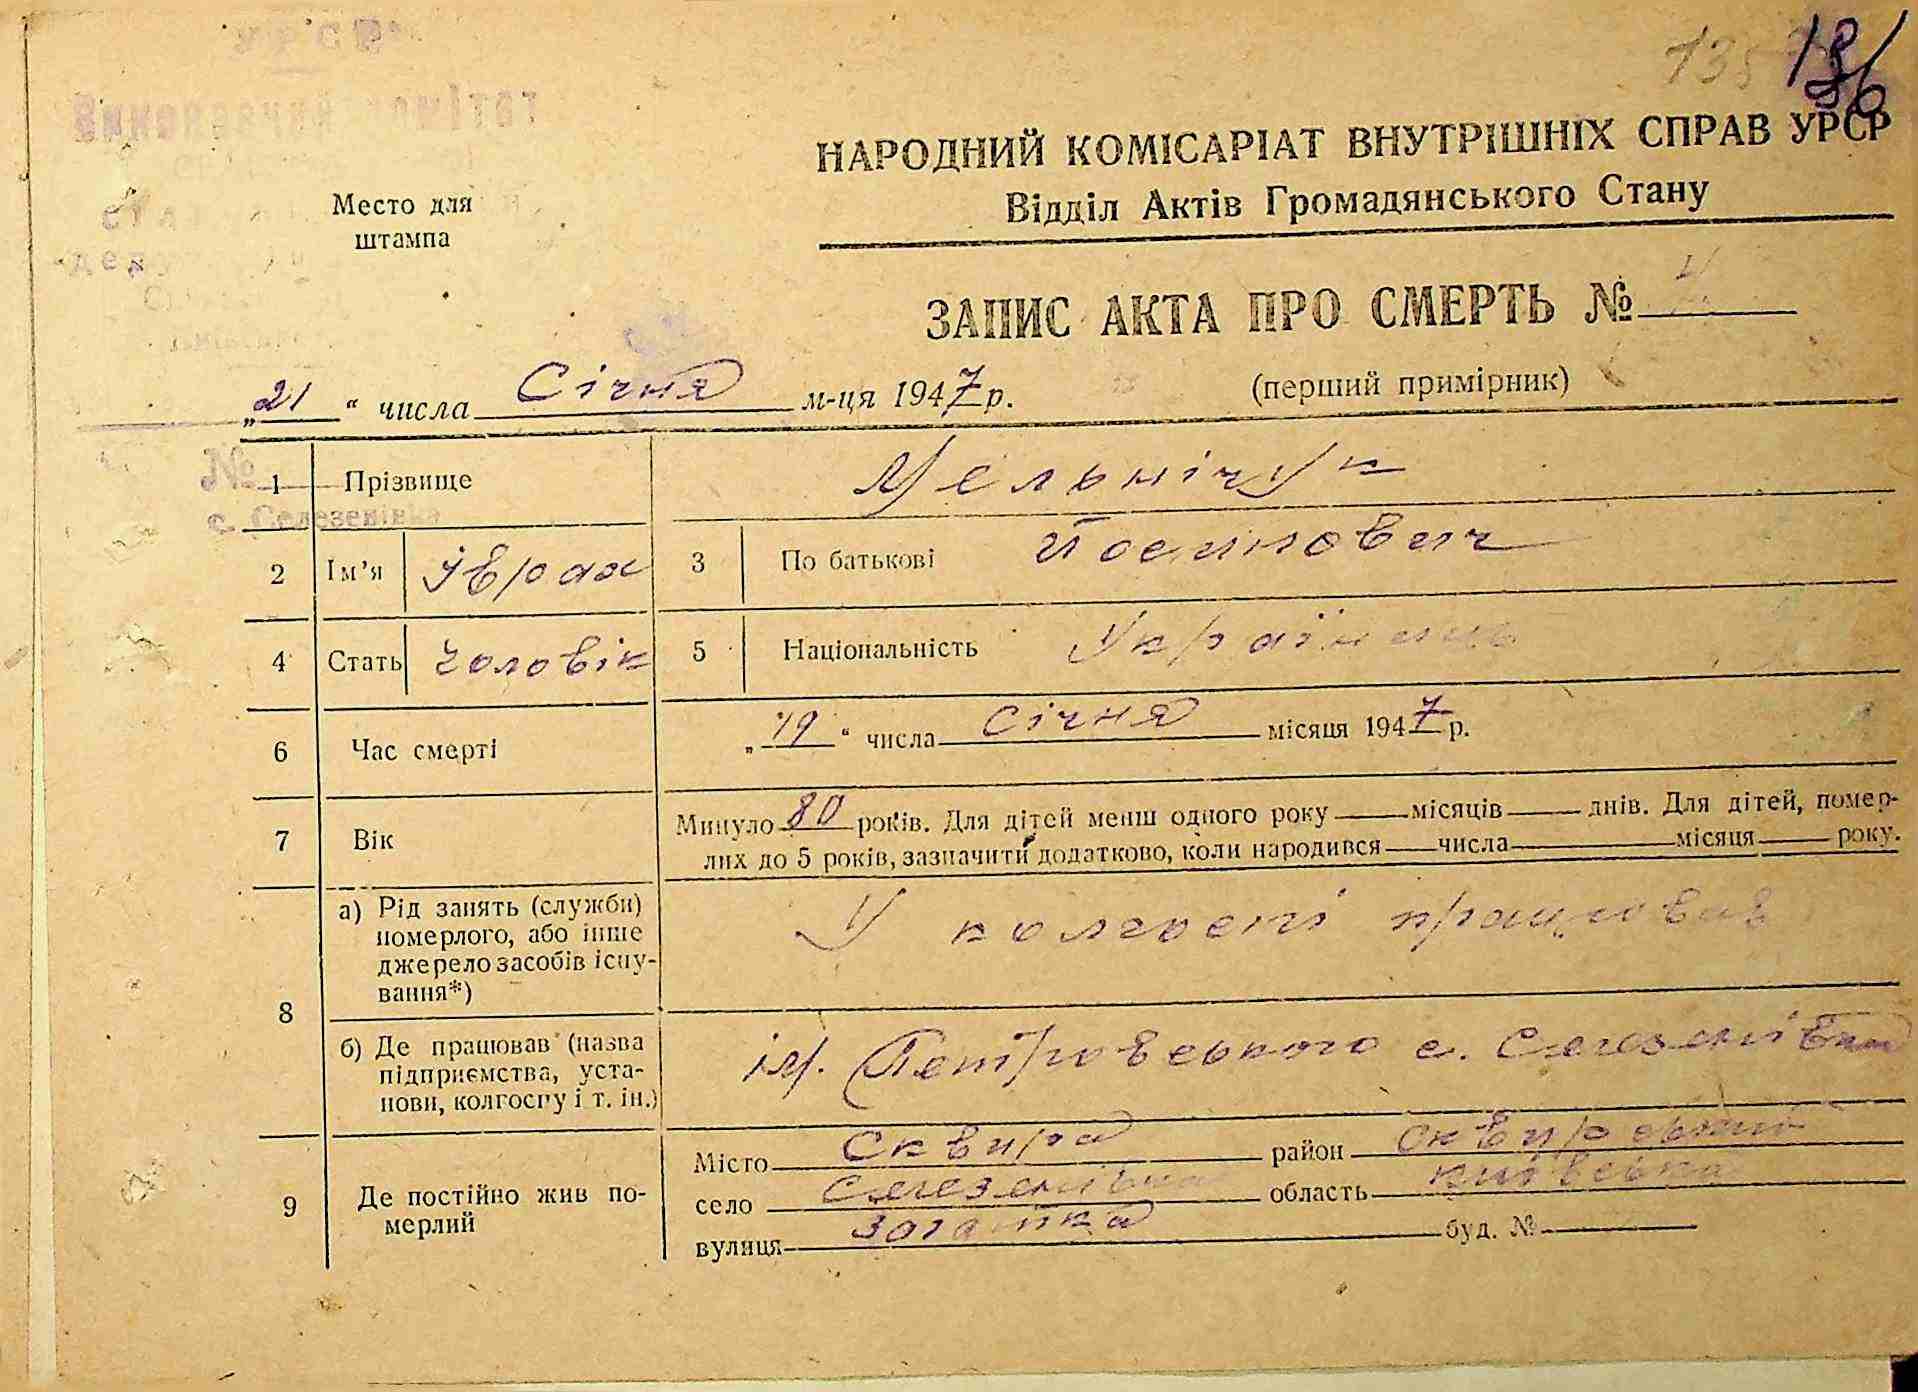 УРСР
135 136
НАРОДНИЙ КОМІСАРІАТ ВНУТРІШНІХ СПРАВ УРСР
Відділ Актів Громадянського Стану
Место для
штампа
ЗАПИС АКТА ПРО СМЕРТЬ № 4
„21“ числа Січня м-ця 1947 р. (перший примірник)
1 Прізвище Мельнічук
№
с. Селезенівка
2 Ім'я Іврах 3 По батькові Йосипович
4 Стать Чоловік 5 Національність Українець
6 Час смерті „19“ числа Січня місяця 1947 р.
7 Вік Минуло 80 років. Для дітей менш одного року місяців днів. Для дітей, помер-
лих до 5 років, зазначити додатково, коли народився числа місяця року.
8 а) Рід занять (служби)
померлого, або інше
джерело засобів існу-
вання*) У колгоспі працював
б) Де працював (назва
підприємства, уста-
нови, колгоспу і т. ін.) ім. Петровського с. Селезенівка
9 Де постійно жив по-
мерлий
Місто Сквира район Сквирський
село Селезенівка область Київська
вулиця Загатка буд. №